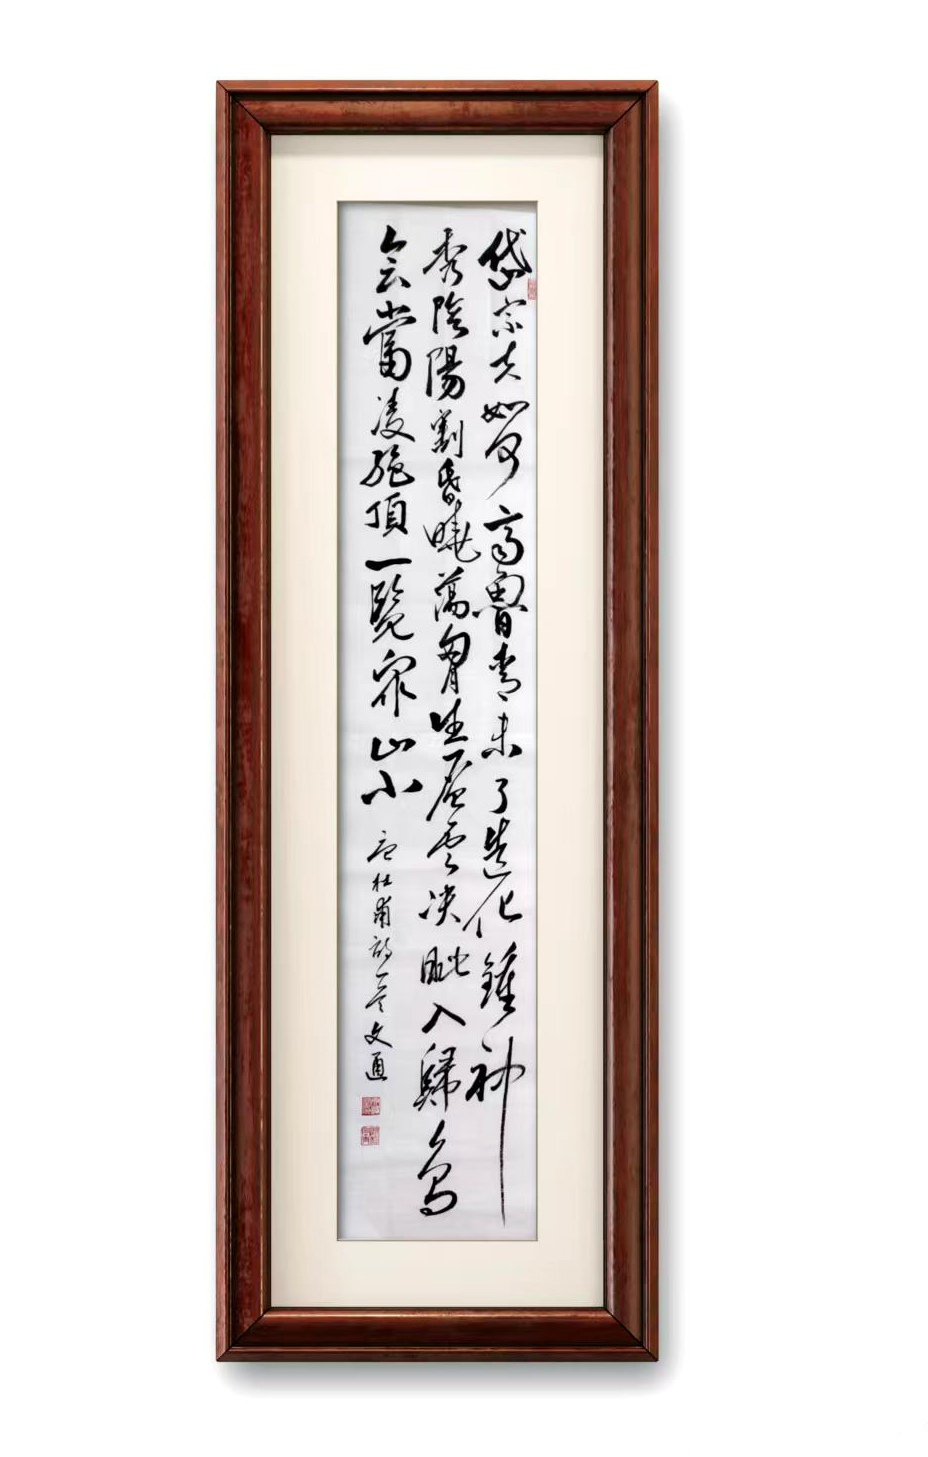 岱宗夫如何齊魯青未了造化鍾神
秀陰陽割昏曉蕩胷生層雲決眦入歸鳥
会當凌絶頂一覽衆山小 唐杜甫詩一首文通